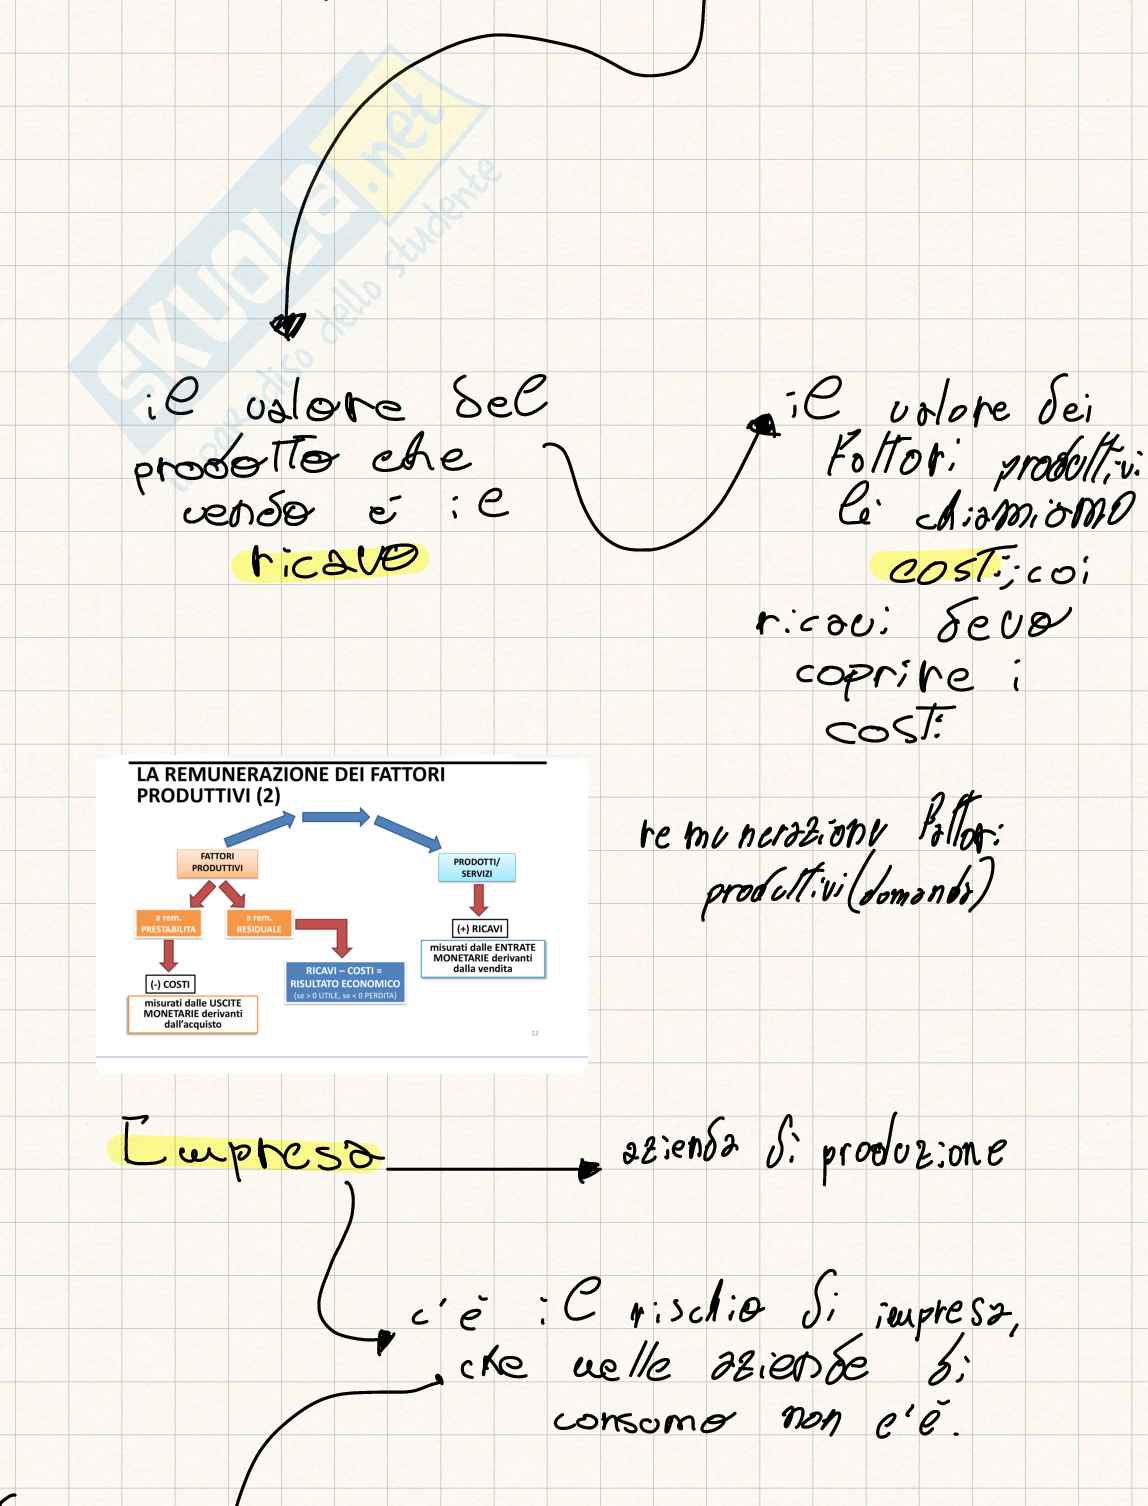 SKUOLA.net
il paradiso dello studente
il valore del
prodotto che
vendo è il
ricavo
il valore dei
fattori produttivi
li chiamiamo
costi; coi
ricavi devo
coprire i
costi
LA REMUNERAZIONE DEI FATTORI
PRODUTTIVI (2)
FATTORI
PRODUTTIVI
PRODOTTI/
SERVIZI
a rem.
PRESTABILITA
a rem.
RESIDUALE
(+) RICAVI
misurati dalle ENTRATE
MONETARIE derivanti
dalla vendita
(-) COSTI
RICAVI – COSTI =
RISULTATO ECONOMICO
(se > 0 UTILE, se < 0 PERDITA)
misurati dalle USCITE
MONETARIE derivanti
dall'acquisto
12
remunerazione fattori
produttivi (domanda)
Impresa
azienda di produzione
c'è il rischio di impresa,
che nelle aziende di
consumo non c'è.